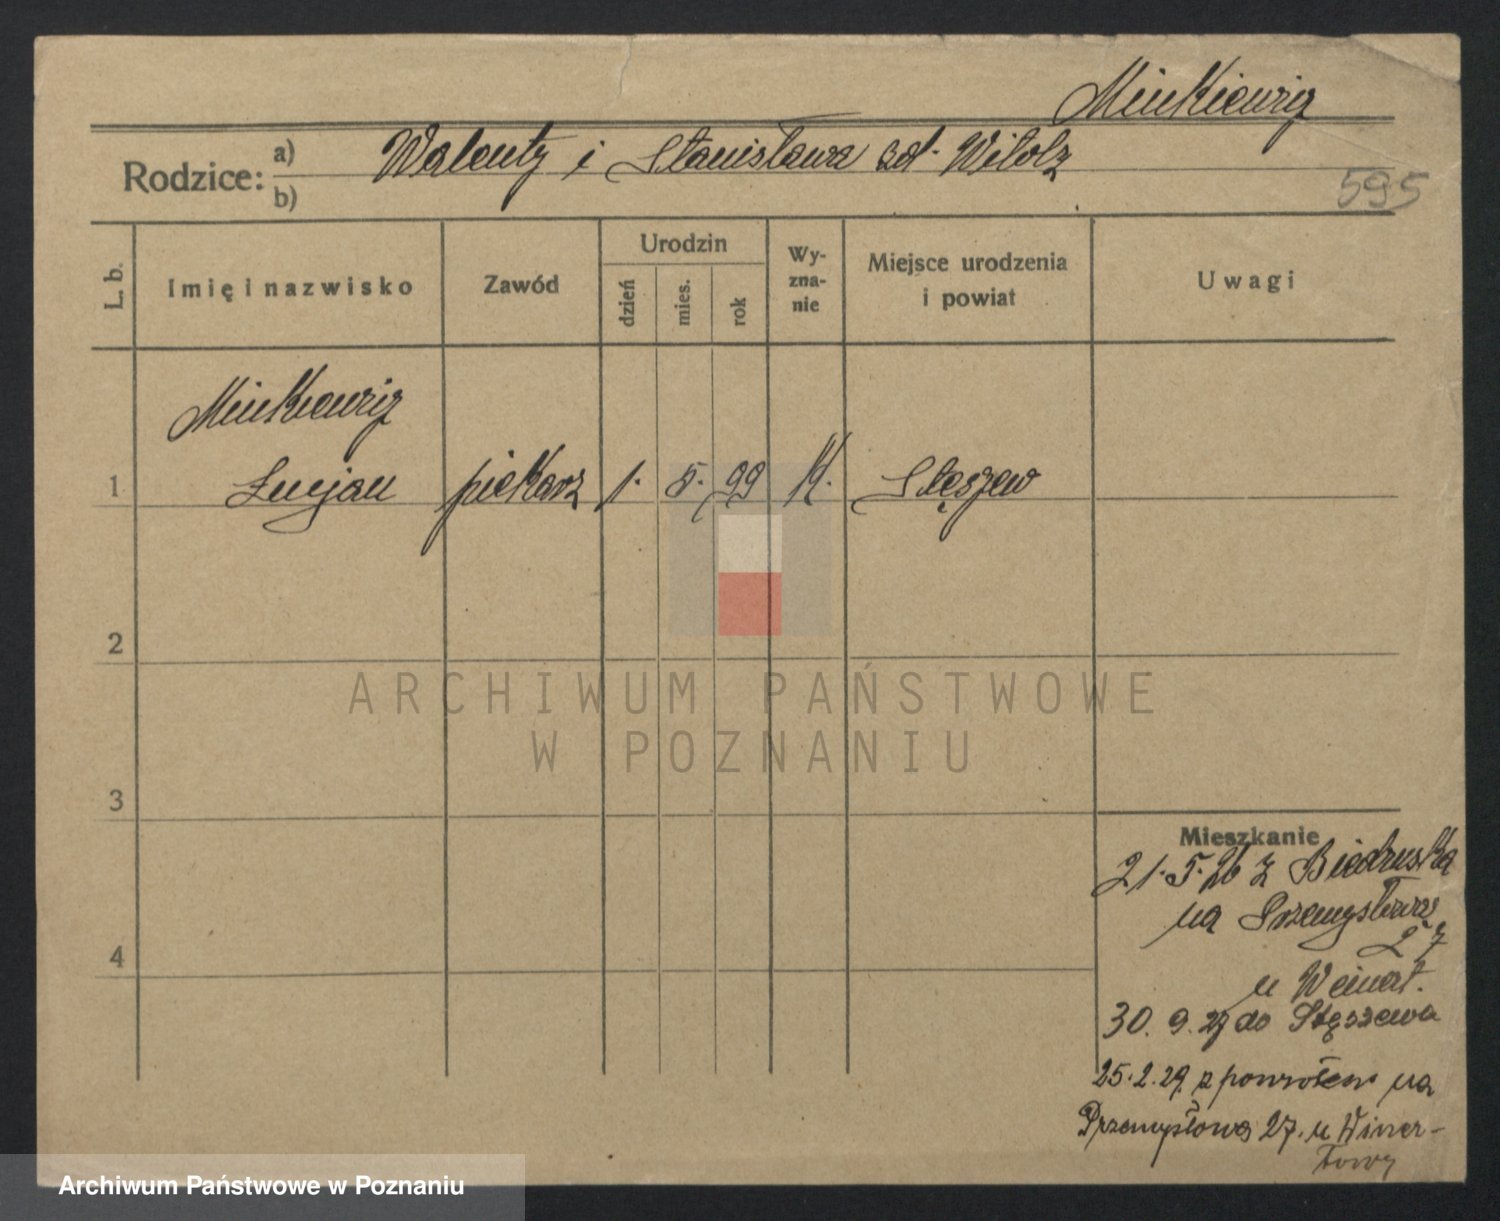 Minkiewicz
Rodzice: a) Walenty i Stanisława
b)
595
L. b.
Imię i nazwisko
Zawód
Urodzin
dzień
mies.
rok
Wy-
zna-
nie
Miejsce urodzenia
i powiat
Uwagi
Minkiewicz
1 Lucjan piekarz 1. 5. 99 K. Stęszew
2
ARCHIWUM PAŃSTWOWE
W POZNANIU
3
Mieszkanie
21.5.26 z Biedruska
na Przemysłową
27
u
4
30. 9. 27 do Stęszewa
25.2.29. z powrotem na
Przemysłową 27. u
Archiwum Państwowe w Poznaniu